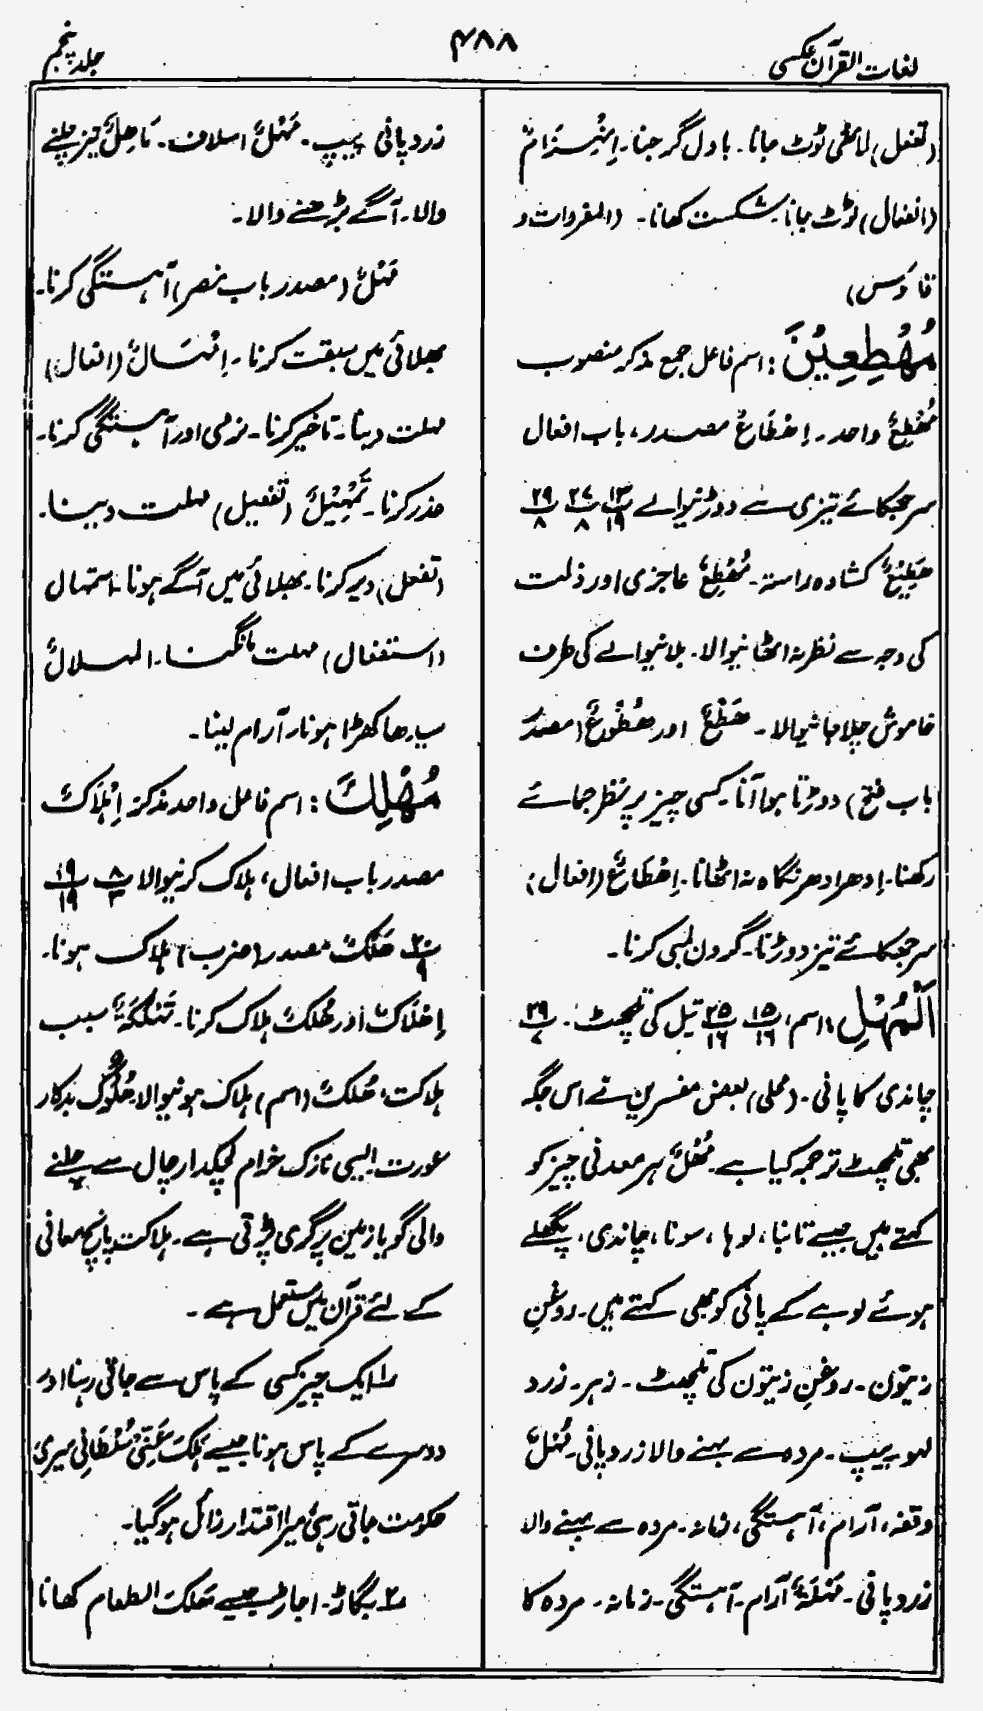 لغات القرآن عکسی
۴۸۸
جلد پنجم
(تفعل) لاٹھی ٹوٹ جانا۔ بادل گرجنا۔ اِنْہِزَامٌ
(انفعال) ٹوٹ جانا۔ شکست کھانا۔ (المفردات و
قاموس)
مُہْطِعِیْنَ : اسم فاعل جمع مذکر منصوب
مُہْطِعٌ واحد۔ اِھْطَاعٌ مصدر، باب افعال
سر جھکائے تیزی سے دوڑنیوالے پ۱۳/۱۹ پ۲۷/۸ پ۲۹/۸
ھَطِیْعٌ کشادہ راستہ۔ مُھْطِعٌ عاجزی اور ذلت
کی وجہ سے نظر نہ اٹھانیوالا۔ بلانیوالے کی طرف
خاموش چلا جانیوالا۔ ھَطْعٌ اور ھُطُوْعٌ (مصدر
باب فتح) دوڑتا ہوا آنا۔ کسی چیز پر نظر جمائے
رکھنا۔ اِدھر ادھر نگاہ نہ اٹھانا۔ اِھْطَاعٌ (افعال)
سر جھکائے تیز دوڑنا۔ گردن لمبی کرنا۔
اَلْمُہْلِ : اسم، پ۱۵/۱۶ پ۲۵/۱۶ تیل کی تلچھٹ۔ پ۲۹/۷
چاندی کا پانی۔ (محلی) بعض مفسرین نے اس جگہ
بھی تلچھٹ ترجمہ کیا ہے۔ مُھْلٌ ہر معدنی چیز کو
کہتے ہیں جیسے تانبا، لوہا، سونا، چاندی، پگھلے
ہوئے لوہے کے پانی کو بھی کہتے ہیں۔ روغنِ
زیتون۔ روغنِ زیتون کی تلچھٹ۔ زہر۔ زرد
لہو۔ پیپ۔ مردہ سے بہنے والا زرد پانی۔ مُہْلٌ
وقفہ، آرام، آہستگی، زمانہ۔ مردہ سے بہنے والا
زرد پانی۔ مُہْلَةٌ آرام۔ آہستگی۔ زمانہ۔ مردہ کا
زرد پانی پیپ۔ مَہْلٌ اسلاف۔ مَاھِلٌ تیز چلنے
والا۔ آگے بڑھنے والا۔
مَہْلٌ (مصدر باب نصر) آہستگی کرنا۔
بھلائی میں سبقت کرنا۔ اِمْہَالٌ (افعال)
مہلت دینا۔ تاخیر کرنا۔ نرمی اور آہستگی کرنا۔
عذر کرنا۔ تَمْہِیْلٌ (تفعیل) مہلت دینا۔
(تفعل) دیر کرنا۔ بھلائی میں آگے ہونا۔ استمہال
(استفعال) مہلت مانگنا۔
سیدھا کھڑا ہونا۔ آرام لینا۔
مُہْلِكَ : اسم فاعل واحد مذکر۔ اِہْلَاكٌ
مصدر باب افعال، ہلاک کرنیوالا پ۸/۳ پ۱۹/۱۹
پ۲۰/۹ ھَلْكٌ مصدر (ضرب) ہلاک ہونا۔
اِھْلَاكٌ اور مُھْلَكٌ ہلاک کرنا۔ تَہْلُكَةٌ سبب
ہلاکت، ھُلْكٌ (اسم) ہلاک ہونیوالا ھَلُوْكٌ بدکار
عورت ایسی نازک خرام لچکدار چال سے چلنے
والی گویا زمین پر گری پڑتی ہے۔ ہلاکت پانچ معانی
کے لئے قرآن میں مستعمل ہے۔
۱۔ ایک چیز کسی کے پاس سے جاتی رہنا اور
دوسرے کے پاس ہونا جیسے ہَلَكَ عَنِّیْ سُلْطَانِیْ میری
حکومت جاتی رہی میرا اقتدار زائل ہوگیا۔
۲۔ بگاڑ۔ اجاڑ جیسے ھَلَكَ الطعام کھانا